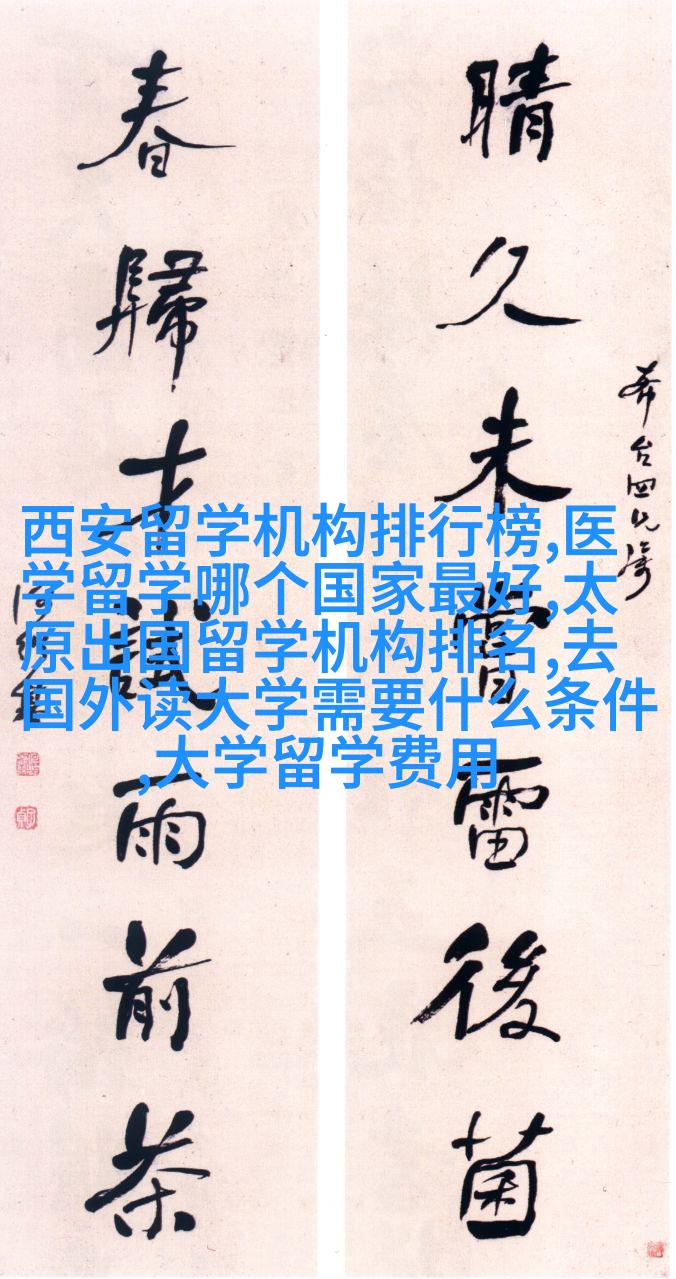 晴久未嘗雷後菌
春歸才議雨前茶
西安留学机构排行榜,医
学留学哪个国家最好,太
原出国留学机构排名,去
国外读大学需要什么条件
,大学留学费用